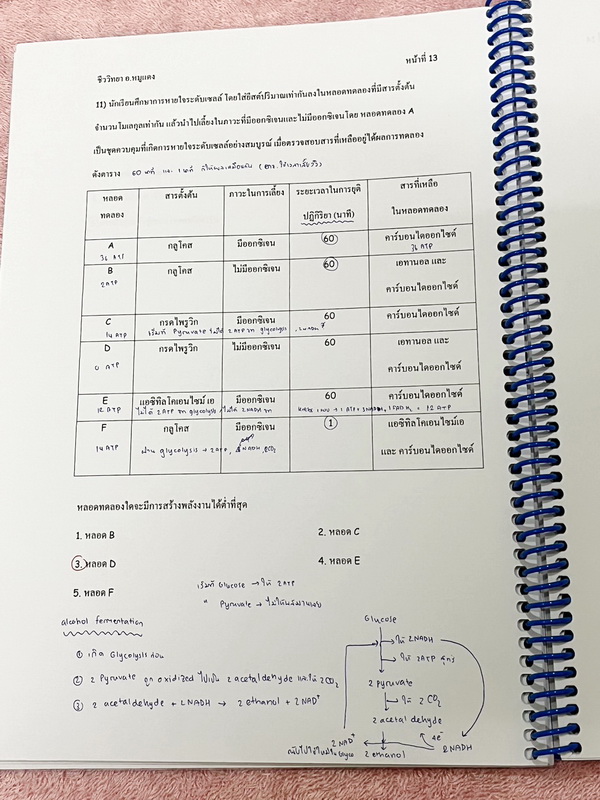 หน้าที่ 13
ชีววิทยา อ.หมูแดง
11) นักเรียนศึกษาการหายใจระดับเซลล์ โดยใส่ยีสต์ปริมาณเท่ากันลงในหลอดทดลองที่มีสารตั้งต้น
จำนวนโมเลกุลเท่ากัน แล้วนำไปเลี้ยงในภาวะที่มีออกซิเจนและไม่มีออกซิเจนโดย หลอดทดลอง A
เป็นชุดควบคุมที่เกิดการหายใจระดับเซลล์อย่างสมบูรณ์ เมื่อตรวจสอบสารที่เหลืออยู่ได้ผลการทดลอง
ดังตาราง 60 นาที และ 1 นาที
หลอดทดลอง สารตั้งต้น ภาวะในการเลี้ยง ระยะเวลาในการยุติปฏิกิริยา (นาที) สารที่เหลือในหลอดทดลอง
A กลูโคส มีออกซิเจน 60 คาร์บอนไดออกไซด์
36 ATP 36 ATP
B กลูโคส ไม่มีออกซิเจน 60 เอทานอล และ
2ATP คาร์บอนไดออกไซด์
C กรดไพรูวิก มีออกซิเจน 60 คาร์บอนไดออกไซด์
14 ATP เริ่มที่ Pyruvate ไม่ได้ 2ATP จาก glycolysis , 2NADH
D กรดไพรูวิก ไม่มีออกซิเจน 60 เอทานอล และ
0 ATP คาร์บอนไดออกไซด์
E แอซิทิลโคเอนไซม์ เอ มีออกซิเจน 60 คาร์บอนไดออกไซด์
12 ATP ไม่ได้ 2ATP จาก glycolysis ไม่ได้ 2NADH จาก = 12 ATP
F กลูโคส มีออกซิเจน 1 แอซิทิลโคเอนไซม์เอ
14 ATP ผ่าน glycolysis → 2ATP, NADH, CO2 และ คาร์บอนไดออกไซด์
หลอดทดลองใดจะมีการสร้างพลังงานได้ต่ำที่สุด
1. หลอด B 2. หลอด C
3. หลอด D 4. หลอด E
5. หลอด F
เริ่มที่ Glucose → ให้ 2ATP
" Pyruvate → ไม่ให้พลังงานเลย
alcohol fermentation
① เกิด Glycolysis ก่อน
② 2 Pyruvate ถูก oxidized ไปเป็น 2 acetaldehyde และให้ 2CO2
③ 2 acetaldehyde + 2NADH → 2 ethanol + 2NAD+
Glucose
ให้ 2NADH
ให้ 2ATP สุทธิ
2 pyruvate
ให้ 2 CO2
2 acetaldehyde
2 NAD+ 4e- 2NADH
2 ethanol